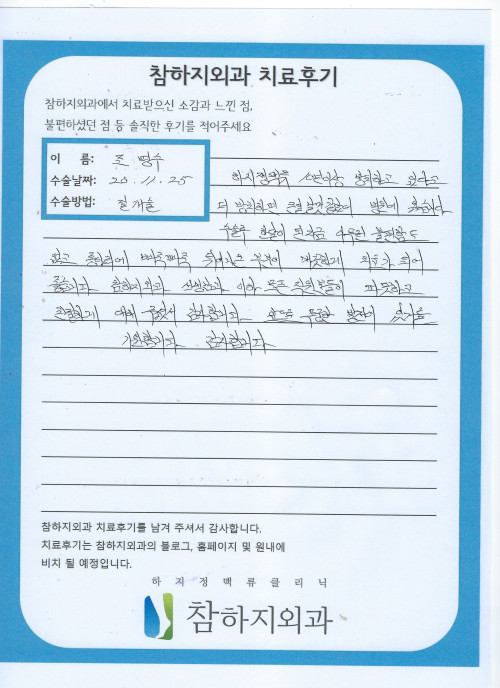 참하지외과 치료후기
참하지외과에서 치료받으신 소감과 느낀 점,
불편하셨던 점 등 솔직한 후기를 적어주세요
이 름: 조 명수
수술날짜: 20. 11. 25
수술방법: 절개술
하지정맥류 10년이상 방치하고 있다고
더 방치하면 큰일날것같아 병원에 왔습니다
수술후 한달이 된지금 아무런 불편함도
없고 종아리에 삐쭉삐쭉 튀어나온 부분이 깨끗하게 치료가 되어
좋습니다. 참하지외과 선생님과 이하 모든 직원분들이 따뜻하고
친절하게 대해 주셔서 감사합니다. 앞으로 무궁한 발전이 있기를
기원합니다. 감사합니다.
참하지외과 치료후기를 남겨 주셔서 감사합니다.
치료후기는 참하지외과의 블로그, 홈페이지 및 원내에
비치 될 예정입니다.
하 지 정 맥 류 클 리 닉
참하지외과